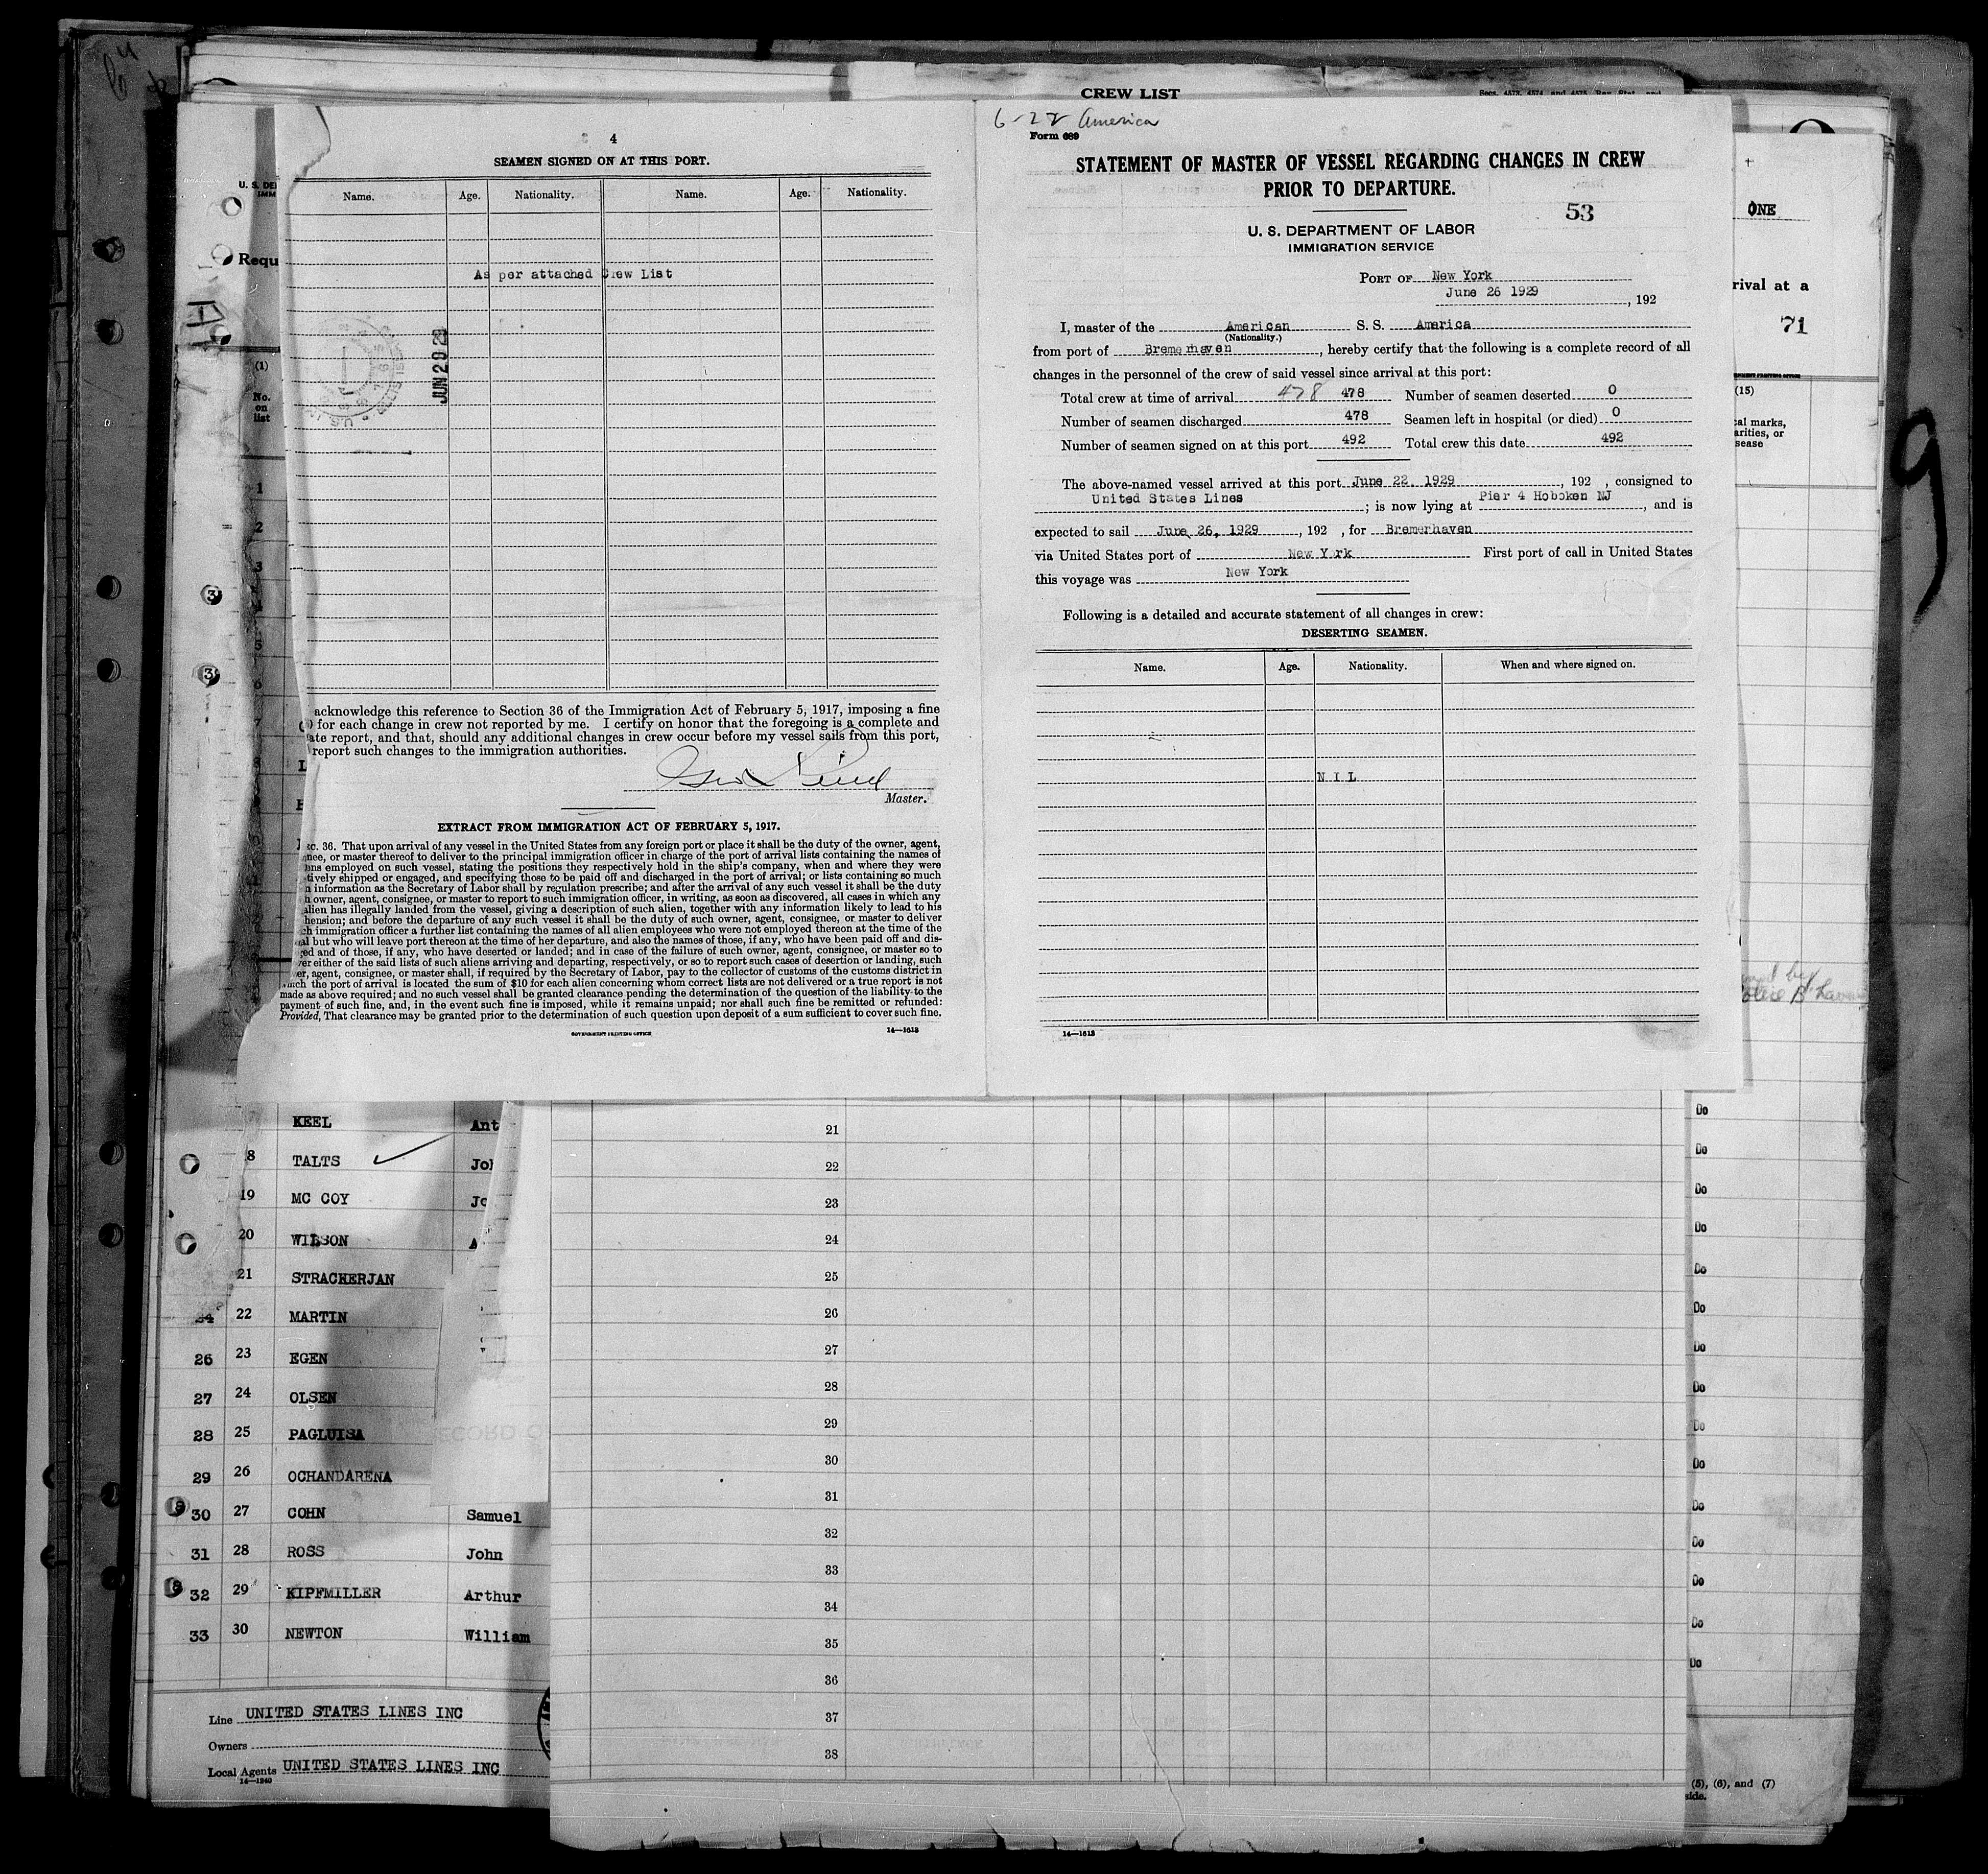 CREW LIST
4
SEAMEN SIGNED ON AT THIS PORT.
Name. Age. Nationality. Name. Age. Nationality.
As per attached Crew List
JUN 29 29
acknowledge this reference to Section 36 of the Immigration Act of February 5, 1917, imposing a fine
for each change in crew not reported by me. I certify on honor that the foregoing is a complete and
ate report, and that, should any additional changes in crew occur before my vessel sails from this port,
report such changes to the immigration authorities.
Master.
EXTRACT FROM IMMIGRATION ACT OF FEBRUARY 5, 1917.
ec. 36. That upon arrival of any vessel in the United States from any foreign port or place it shall be the duty of the owner, agent,
nee, or master thereof to deliver to the principal immigration officer in charge of the port of arrival lists containing the names of
ons employed on such vessel, stating the positions they respectively hold in the ship's company, when and where they were
tively shipped or engaged, and specifying those to be paid off and discharged in the port of arrival; or lists containing so much
n information as the Secretary of Labor shall by regulation prescribe; and after the arrival of any such vessel it shall be the duty
h owner, agent, consignee, or master to report to such immigration officer, in writing, as soon as discovered, all cases in which any
alien has illegally landed from the vessel, giving a description of such alien, together with any information likely to lead to his
hension; and before the departure of any such vessel it shall be the duty of such owner, agent, consignee, or master to deliver
ch immigration officer a further list containing the names of all alien employees who were not employed thereon at the time of the
al but who will leave port thereon at the time of her departure, and also the names of those, if any, who have been paid off and dis-
ged and of those, if any, who have deserted or landed; and in case of the failure of such owner, agent, consignee, or master so to
ver either of the said lists of such aliens arriving and departing, respectively, or so to report such cases of desertion or landing, such
er, agent, consignee, or master shall, if required by the Secretary of Labor, pay to the collector of customs of the customs district in
which the port of arrival is located the sum of $10 for each alien concerning whom correct lists are not delivered or a true report is not
made as above required; and no such vessel shall be granted clearance pending the determination of the question of the liability to the
payment of such fine, and, in the event such fine is imposed, while it remains unpaid; nor shall such fine be remitted or refunded:
Provided, That clearance may be granted prior to the determination of such question upon deposit of a sum sufficient to cover such fine.
GOVERNMENT PRINTING OFFICE 14—1613
6-22 America
Form 689
STATEMENT OF MASTER OF VESSEL REGARDING CHANGES IN CREW
PRIOR TO DEPARTURE.
53
U. S. DEPARTMENT OF LABOR
IMMIGRATION SERVICE
PORT OF New York
June 26 1929, 192
I, master of the American S. S. America
(Nationality.)
from port of Bremerhaven, hereby certify that the following is a complete record of all
changes in the personnel of the crew of said vessel since arrival at this port:
Total crew at time of arrival 478 478 Number of seamen deserted 0
Number of seamen discharged 478 Seamen left in hospital (or died) 0
Number of seamen signed on at this port 492 Total crew this date 492
The above-named vessel arrived at this port June 22, 1929, 192 , consigned to
United States Lines; is now lying at Pier 4 Hoboken NJ, and is
expected to sail June 26, 1929, 192 , for Bremerhaven
via United States port of New Y rk First port of call in United States
this voyage was New York
Following is a detailed and accurate statement of all changes in crew:
DESERTING SEAMEN.
Name. Age. Nationality. When and where signed on.
N I L
14—1613
U. S. DE
IMM
Requ
(1)
No.
on
list
1
2
3
4
5
6
7
ONE
rival at a
71
(15)
cal marks,
arities, or
sease
9
KEEL Ant
18 TALTS Joh
19 MC COY Jo
20 WILSON A
21 STRACKERJAN
24 22 MARTIN
26 23 EGEN
27 24 OLSEN
28 25 PAGLUISA
29 26 OCHANDARENA
30 27 COHN Samuel
31 28 ROSS John
32 29 KIPFMILLER Arthur
33 30 NEWTON William
Line UNITED STATES LINES INC
Owners
Local Agents UNITED STATES LINES INC
14—1240
21
22
23
24
25
26
27
28
29
30
31
32
33
34
35
36
37
38
Do
Do
Do
Do
Do
Do
Do
Do
Do
Do
Do
Do
Do
Do
Do
(5), (6), and (7)
side.